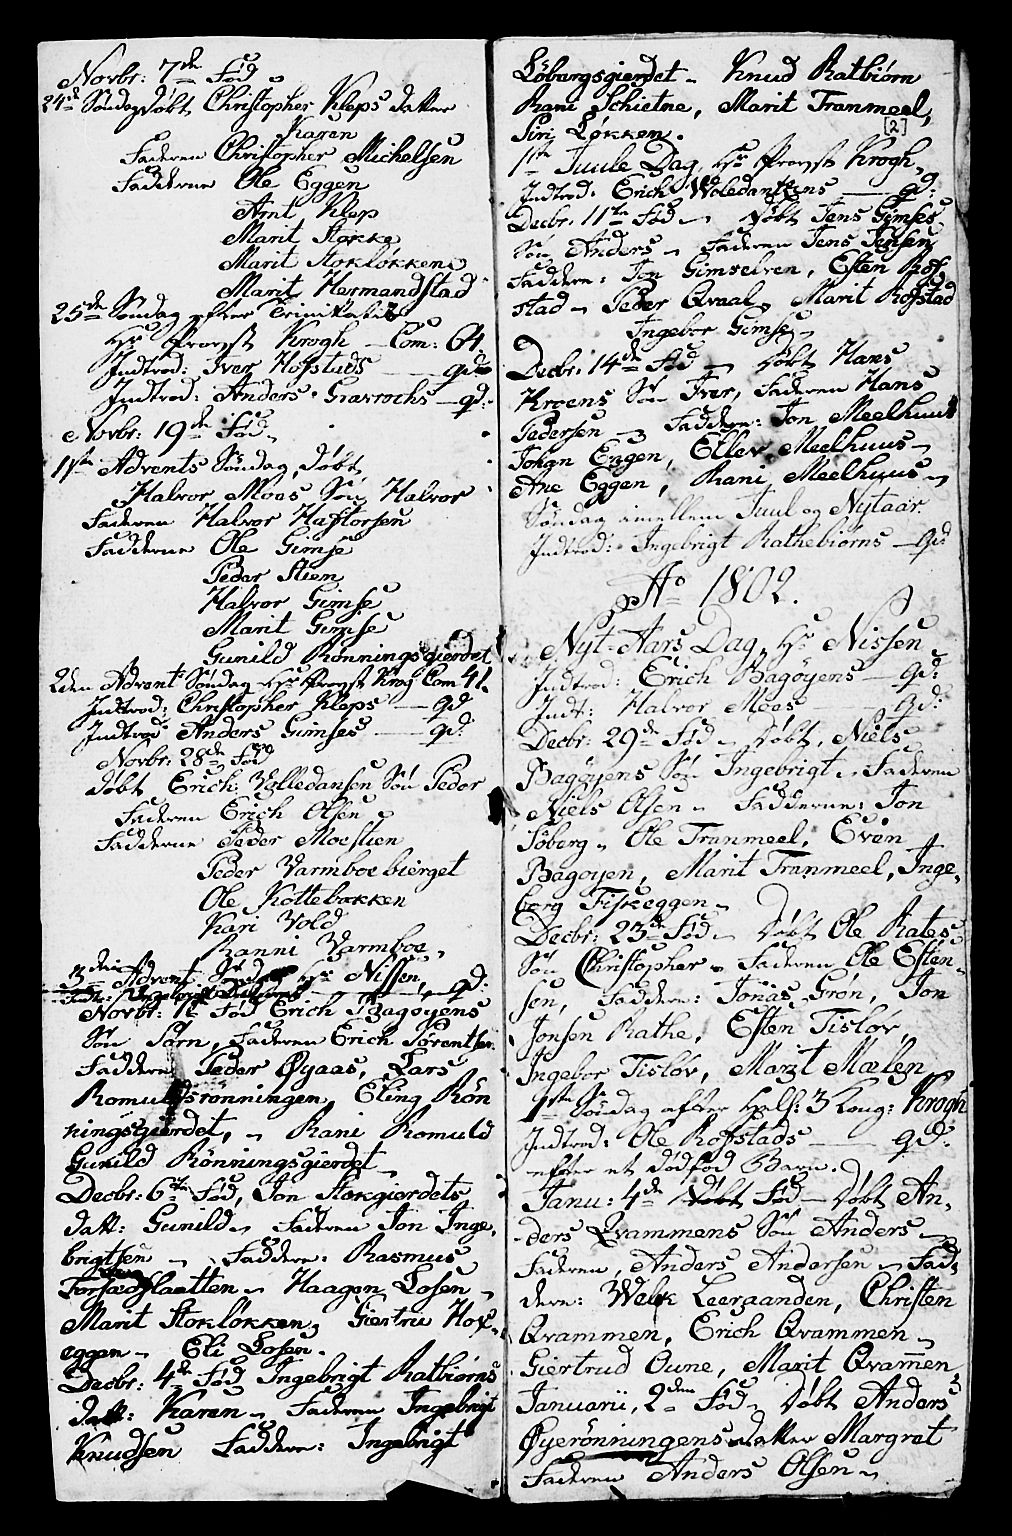 Novbr: 7de Fød
24de Søndag Døbt Christopher Kleps Datter
Karen
Faderen Christopher Michelsen
Fadderne Ole Eggen
Arnt Klep
Marit Stokke
Marit Stokløkken
Marit Hermandstad
25de Søndag efter Trinitatis
Hr Provst Krogh – Com: 64.
Indtrod: Iver Hofstads – qd
Indtrod: Anders Graxrochs – qd:
Novbr: 19de Fød
1ste Advents Søndag, Døbt
Halvor Moos Søn Halvor
Faderen Halvor Haftorsen
Fadderne Ole Gimse
Peder Stien
Halvor Gimse
Marit Gimse
Gunild Rønningsgierdet
2den Advent Søndag Hr Provst Krog Com 41.
Indtrod: Christopher Kleps – qd
Indtrod Anders Gimses – qd:
Novbr: 28de Fød
Døbt Erich Volledansen Søn Peder
Faderen Erich Olsen
Fadderne Peder Moestien
Peder Varmboe bierget
Ole Kottebakken
Kari Vold
Ranni Varmboe
3die Advent Hr Nissen, qd:
Novbr: Fød Erich Bagøyens
Søn Sørn, Faderen Erich Sørentsen
Faddern Peder Øyaas, Lars
Romuldsrønningen, Eling Røn
ningsgierdet, – Rani Romuld
Gunild Rønningsgierdet
Decbr: 6te Fød, Jon Stokgierdets
Datt: Gunild – Faderen Jon Inge,
brigtsen – Faddere: Rasmus
Forsædslaatten – Haagen Losen –
Marit Stokløkken, Giertru Hox,
eggen – Eli Losen.
Decbr: 4de Fød Ingebrigt Ratbiørns
Datt: Karen – Faderen Ingebrigt
Knudsen Faddere: Ingebrigt
Løbergsgierdet – Knud Ratbiørn
Rani Schietne, Marit Tranmeel,
[2]
Siri Løkken.
1ste Juule Dag, Hr Provst Krogh,
Indtrod: Erich Woledansens – qd:
Decbr: 11te Fød – Døbt Jens Gimses
Søn Anders – Faderen Jens Jensen
Faddere: Jon Gimselven, Esten Rof,
stad – Peder Qvaal – Marit Rofstad
Ingebor Gimse –
Decbr: 14de Fød – Døbt Hans
Kroens Søn Iver, Faderen Hans
Pedersen – Faddere: Jon Meelhuus
Johan Engen, Ellev Meelhuus –
Ane Eggen, Rani Meelhuus –
Søndag imellem Juul og Nytaar
Indtrod: Ingebrigt Rathebiørns – qd:
Ao 1802.
Nyt-Aars Dag, Hr Nissen
Indtrod: Erich Bagøyens – qd:
Indt: Halvor Moos qd:
Decbr: 29de Fød – Døbt, Niels
Bagøyens Søn Ingebrigt – Faderen
Niels Olsen – Fadderne: Jon
Søberg – Ole Tranmeel, Even
Bagøyen, Marit Tranmeel, Inge,
borg Fiskeggen –
Decbr: 23de Fød – Døbt Ole Rates
Søn Christopher – Faderen Ole Esten,
sen, Faddere: Jonas Grøn, Jon
Jonsen Rathe, Esten Tisløv,
Ingebor Tisløv, Marit Mælen,
1ste Søndag efter Hell: 3 Kong: Krogh
Indtrod: Ole Rofstads – qd:
efter et dødfød Barn.
Janu: 4de Døbt Fød – Døbt An,
ders Qvammens Søn Anders –
Faderen, Anders Andersen – Fad,
dere: Leeraanden, Christen
Qvammen, Erich Qvammen –
Giertrud Oune, Marit Qvam̄en
Januarii, 2den Fød – Døbt Anders
Øyerønningens Datter Margret
Faderen Anders Olsen –